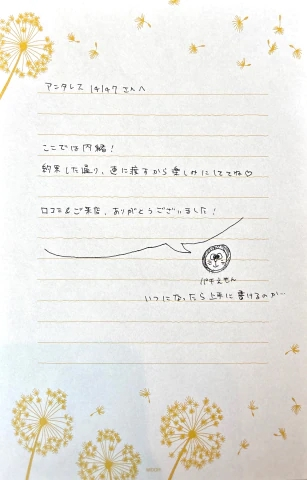 アンタレス1414Zさんへ
ここでは内緒！
約束した通り、連に渡すから楽しみにしててね♡
口コミ&ご来店、ありがとうございました！
パキえもん
いつになったら上手に書けるのか…